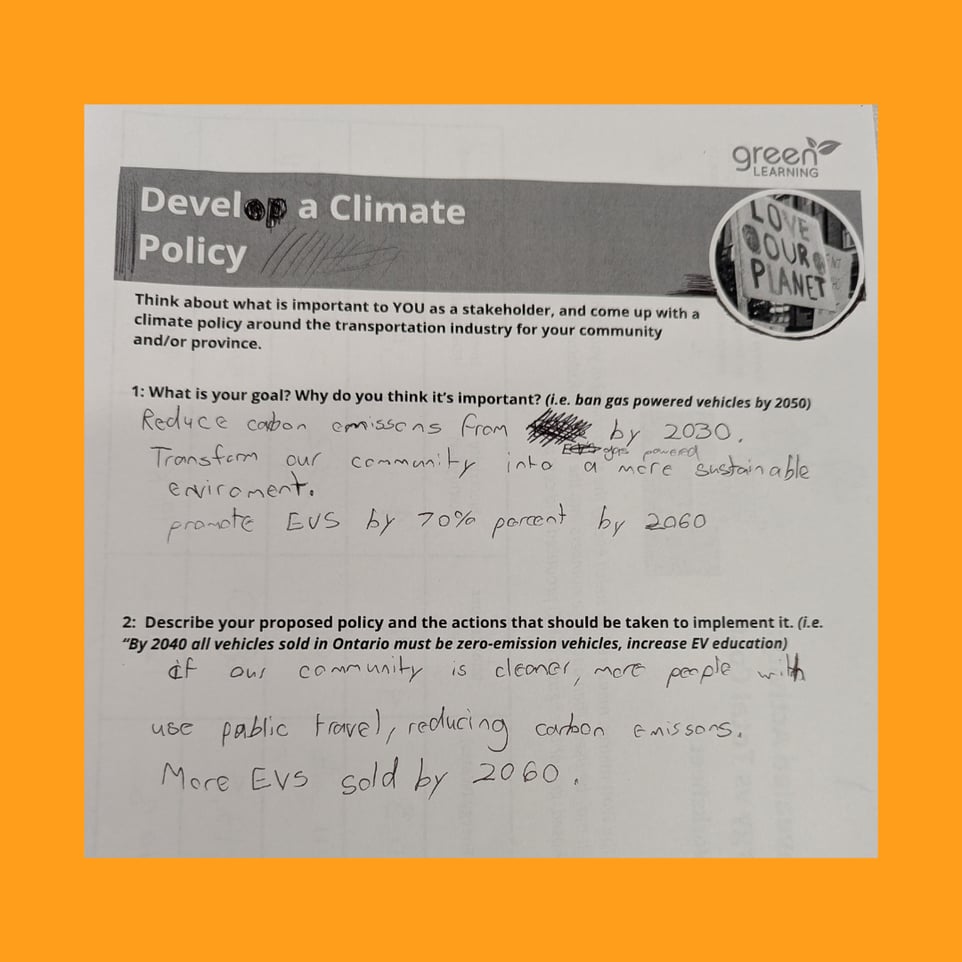 green
LEARNING
Develop a Climate
Policy
LOVE
OUR
PLANET
Think about what is important to YOU as a stakeholder, and come up with a
climate policy around the transportation industry for your community
and/or province.
1: What is your goal? Why do you think it's important? (i.e. ban gas powered vehicles by 2050)
Reduce carbon emissons from by 2030.
gas powered
Transform our community into a more sustainable
enviroment.
promote EVS by 70% parcent by 2060
2: Describe your proposed policy and the actions that should be taken to implement it. (i.e.
“By 2040 all vehicles sold in Ontario must be zero-emission vehicles, increase EV education)
if our community is cleaner, more people with
use public travel, reducing carbon emissons.
More EVS sold by 2060.